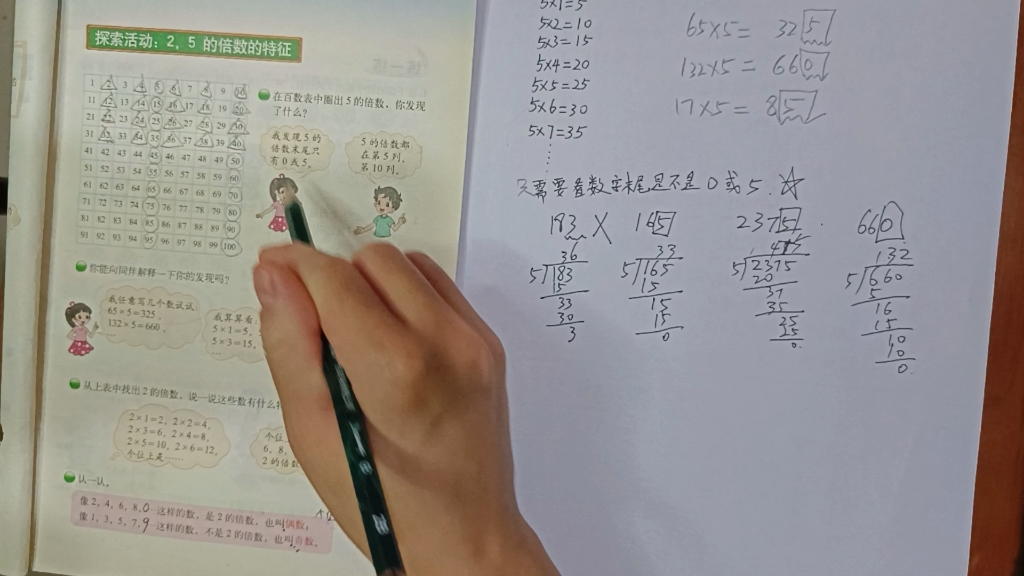 探索活动：2，5 的倍数的特征
1 2 3 4 5 6 7 8 9 10
11 12 13 14 15 16 17 18 19 20
21 22 23 24 25 26 27 28 29 30
31 32 33 34 35 36 37 38 39 40
41 42 43 44 45 46 47 48 49 50
51 52 53 54 55 56 57 58 59 60
61 62 63 64 65 66 67 68 69 70
71 72 73 74 75 76 77 78 79 80
81 82 83 84 85 86 87 88 89 90
91 92 93 94 95 96 97 98 99 100
在百数表中圈出5的倍数，你发现
了什么？
我发现5的
倍数末尾只
有0或5。
5的倍数都
在第5列，
第10列。
你能向同伴解释一下你的发现吗？
我任意写几个数试试，
65×5=325，
132×5=660，
……
我算算看，
5×1=5，
5×3=15，
……
从上表中找出2的倍数，说一说这些数有什么
2×1=2，2×2=4，
2×3=6，2×4=8，
2×5=10，2×6=12，
个位上是……
个位
6，8，
2的倍数
认一认。
像2，4，6，8，0…这样的数，是2的倍数，也叫偶数；
像1，3，5，7，9…这样的数，不是2的倍数，也叫奇数。
5×1=5
5×2=10
5×3=15
5×4=20
5×5=25
5×6=30
5×7=35
65×5= 325
132×5= 660
17×5= 85
只需要看数字末尾是不是0或5.☆
183 ×
36
5 183
15
33
30
3
165
33
5 165
15
15
15
0
2375
475
5 2375
20
37
35
25
25
0
660
132
5 660
5
16
15
10
10
0